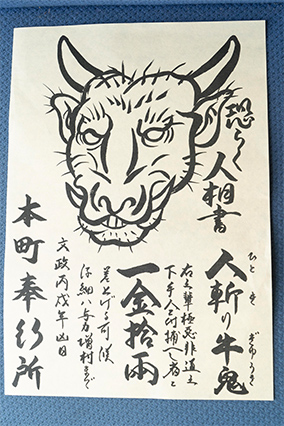 恐らく
人相書
人斬り牛鬼
ひとき
ぎゅうき
右之輩極悪非道之
下手人ニ付捕へし者ニ
一金拾両
差上げる可候
仔細ハ与力増村まで
文政丙戌年四日
本町奉行所